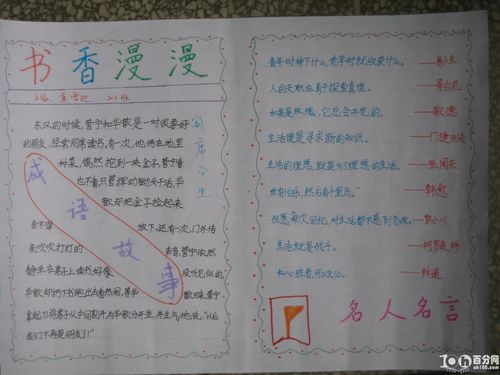 书香漫漫
东汉的时候,管宁和华歆是一对很要好
的朋友,经常同席读书,有一次,他俩在地里
种菜,偶然挖到一块金子,管宁看
也不看,只管挥动锄头干活,华
歆却把金子捡起来
舍不得
放下,还有一次,门外传
来吹吹打打的
声音,管宁依然
静坐在席子上读书,好像
没听见似的,
华歆却扔下书跑出去看热闹,等华
歆回来,管宁
拿起刀将席子从中间割开与华歆分开坐,并生气地说:“以后
我们不再是朋友了!”
割席分坐
成语故事
青年时种下什么,老年时就收获什么。——易卜生
人的天职在勇于探索真理。——哥白尼
如果是玫瑰,它总会开花的。——歌德
生活便是寻求新的知识。——门捷列夫
生活的理想,就是为了理想的生活。——张闻天
世有伯乐,然后有千里马。——韩愈
但愿每次回忆,对生活都不感到负疚。——郭小川
生活就是战斗。——柯罗连科
私心胜者,可以灭公。——林逋
名人名言
百分网
oh100.com